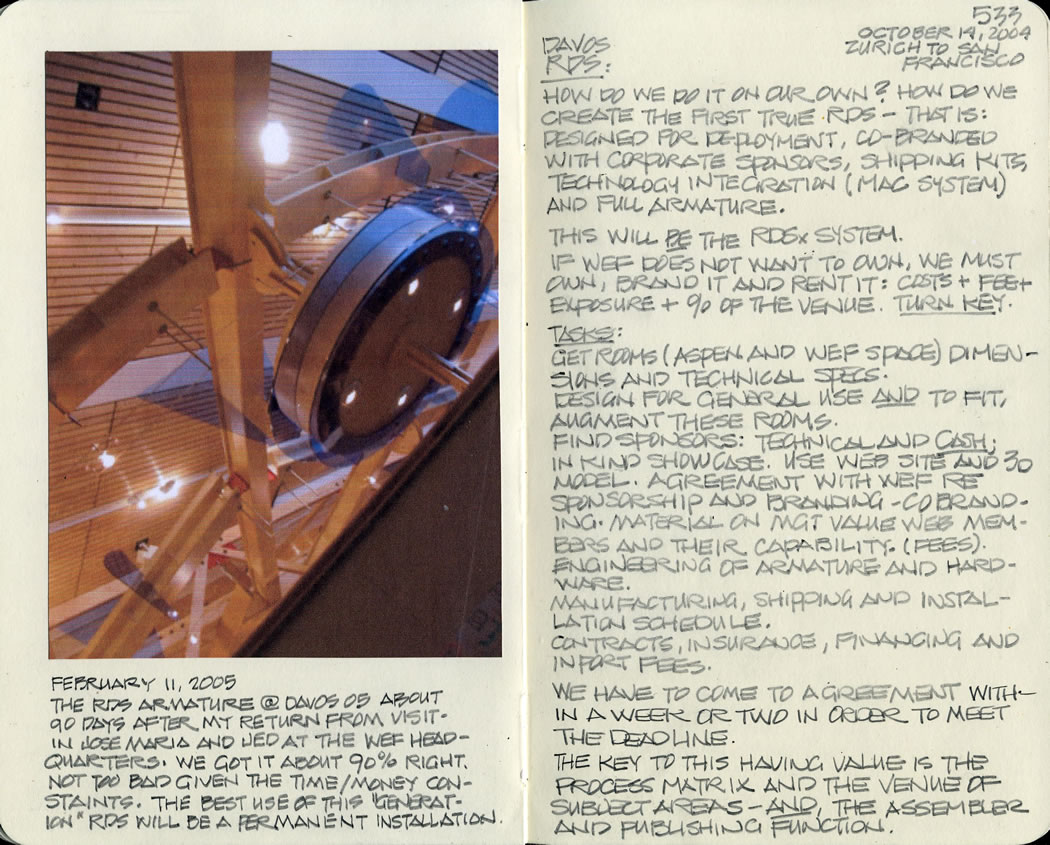 FEBRUARY 11, 2005
THE RDS ARMATURE @ DAVOS 05 ABOUT
90 DAYS AFTER MY RETURN FROM VISIT-
IN JOSE MARIA AND JED AT THE WEF HEAD-
QUARTERS. WE GOT IT ABOUT 90% RIGHT.
NOT TOO BAD GIVEN THE TIME/MONEY CON-
STAINTS. THE BEST USE OF THIS "GENERAT-
ION" RDS WILL BE A PERMANENT INSTALLATION.
533
OCTOBER 14, 2004
ZURICH TO SAN
FRANCISCO
DAVOS
RDS:
HOW DO WE DO IT ON OUR OWN? HOW DO WE
CREATE THE FIRST TRUE RDS - THAT IS:
DESIGNED FOR DEPLOYMENT, CO-BRANDED
WITH CORPORATE SPONSORS, SHIPPING KITS,
TECHNOLOGY INTEGRATION (MAC SYSTEM)
AND FULL ARMATURE.
THIS WILL BE THE RDSx SYSTEM.
IF WEF DOES NOT WANT TO OWN, WE MUST
OWN, BRAND IT AND RENT IT: COSTS + FEE +
EXPOSURE + % OF THE VENUE. TURN KEY.
TASKS:
GET ROOMS (ASPEN AND WEF SPACE) DIMEN-
SIONS AND TECHNICAL SPECS.
DESIGN FOR GENERAL USE AND TO FIT,
AUGMENT THESE ROOMS.
FIND SPONSORS: TECHNICAL AND CASH;
IN KIND SHOWCASE. USE WEB SITE AND 3D
MODEL. AGREEMENT WITH WEF RE
SPONSORSHIP AND BRANDING - CO BRAND-
ING. MATERIAL ON MGT VALUE WEB MEM-
BERS AND THEIR CAPABILITY. (FEES).
ENGINEERING OF ARMATURE AND HARD-
WARE.
MANUFACTURING, SHIPPING AND INSTAL-
LATION SCHEDULE.
CONTRACTS, INSURANCE, FINANCING AND
INPORT FEES.
WE HAVE TO COME TO AGREEMENT WITH-
IN A WEEK OR TWO IN ORDER TO MEET
THE DEADLINE.
THE KEY TO THIS HAVING VALUE IS THE
PROCESS MATRIX AND THE VENUE OF
SUBJECT AREAS - AND, THE ASSEMBLER
AND PUBLISHING FUNCTION.